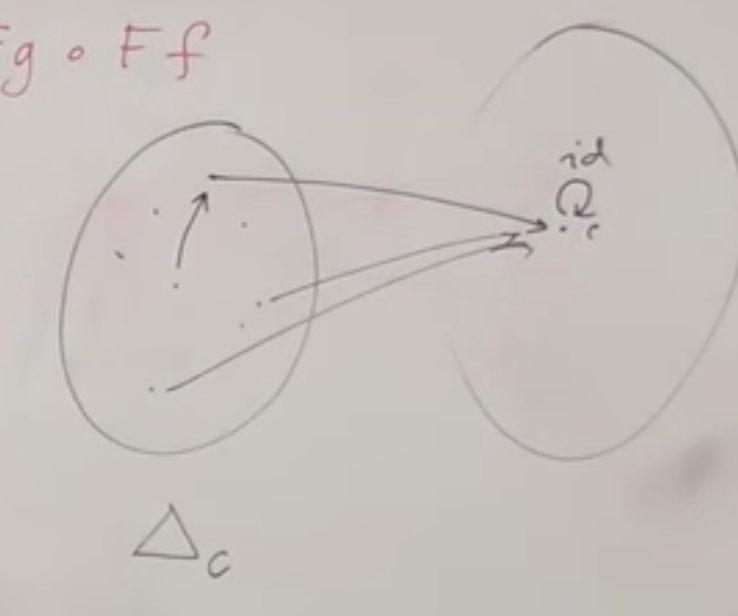 Fg ∘ Ff
id
c
Δc